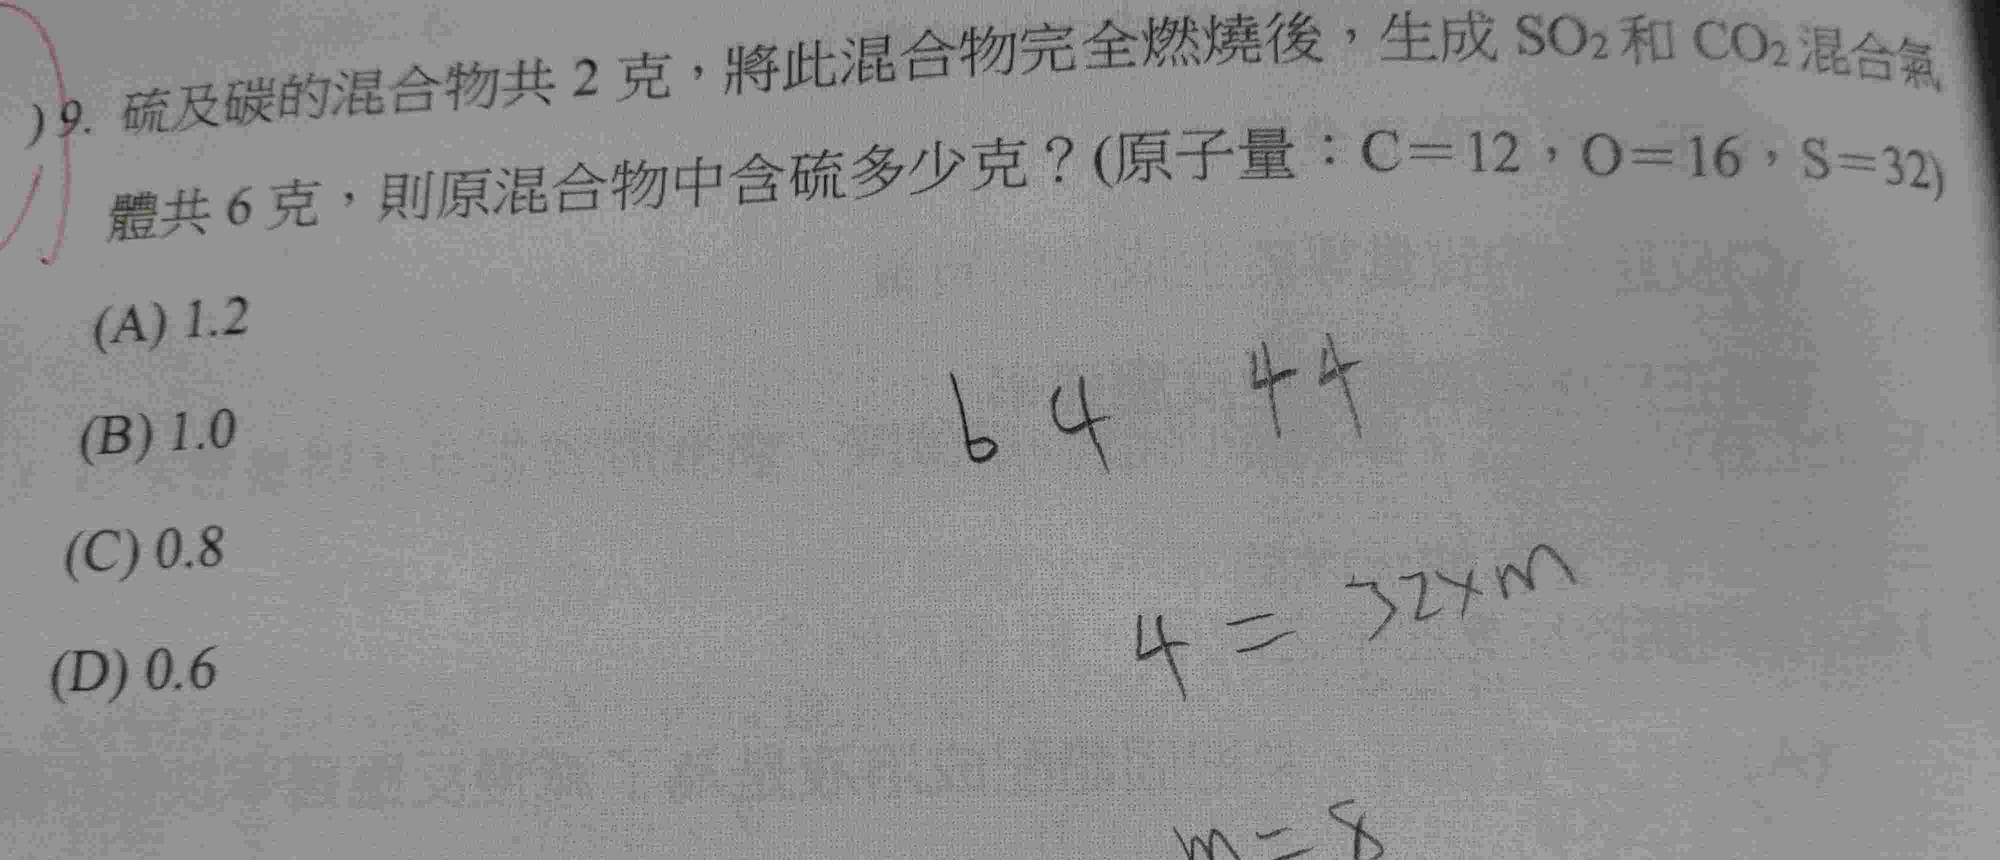 )9. 硫及碳的混合物共 2 克,將此混合物完全燃燒後,生成 SO₂ 和 CO₂ 混合氣
體共 6 克,則原混合物中含硫多少克?(原子量:C=12,O=16,S=32)
(A) 1.2
(B) 1.0
(C) 0.8
(D) 0.6
64 44
4 = 32×m
m = 8